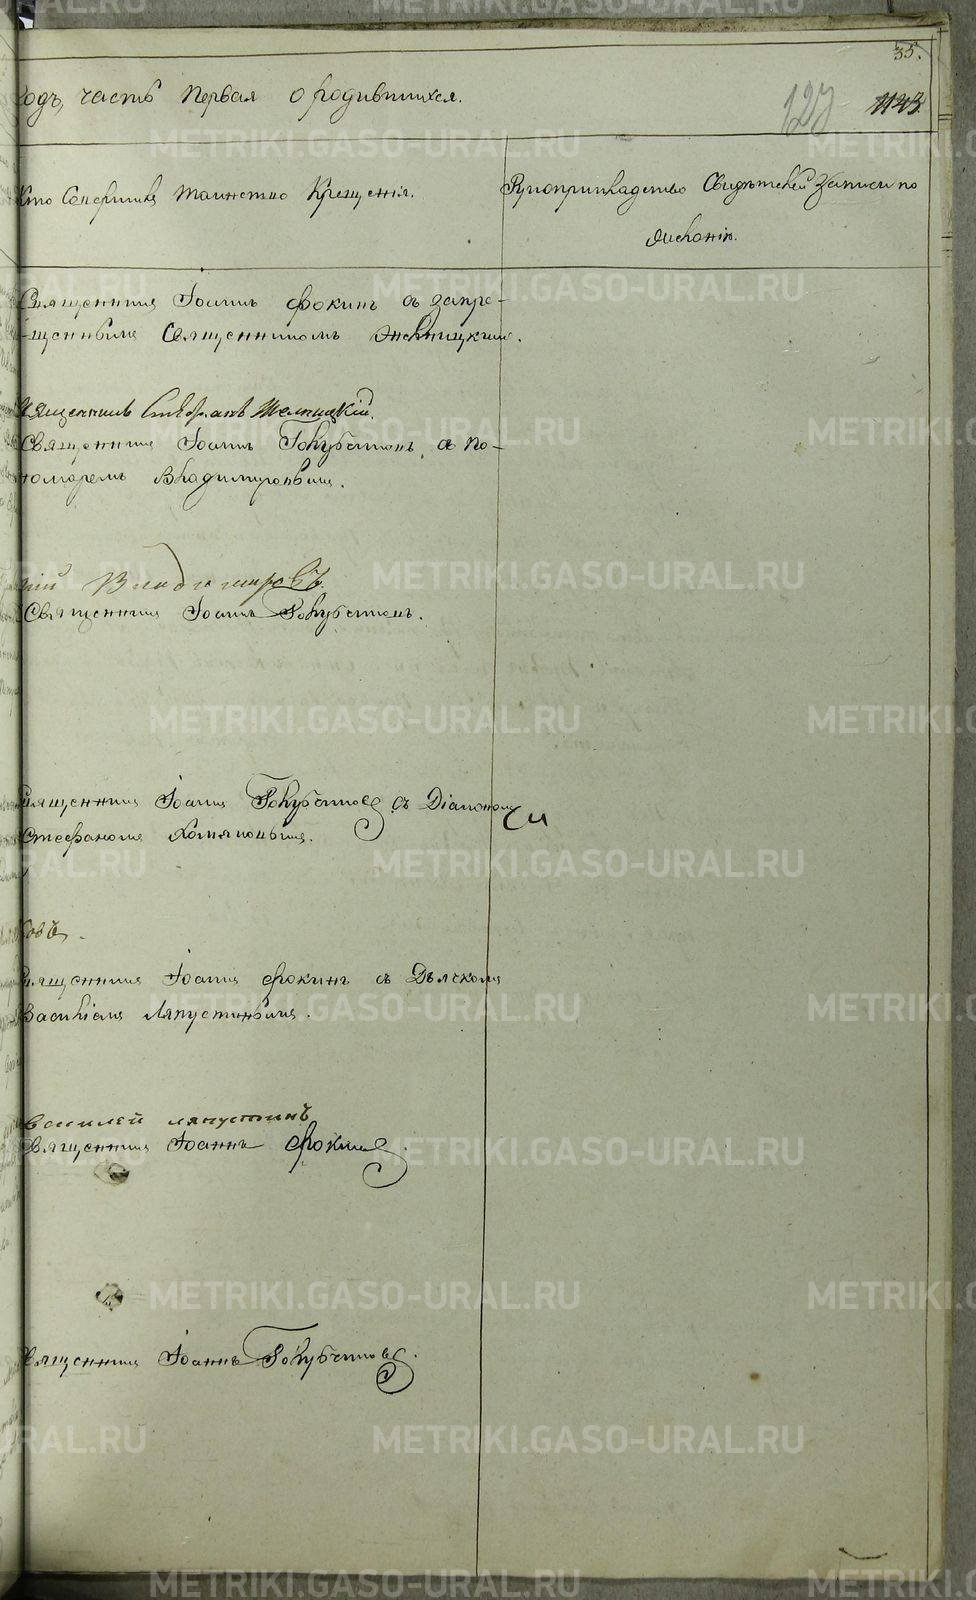 35.
годъ, часть первая о родившихся.
127 1143
Кто Совершилъ таинство Крещенія.
Рукоприкладство Свидѣтелей Записи по
желанію.
Священникъ Іоаннъ Фокинъ съ запре-
-щеннымъ Священникомъ
Священникъ Стефанъ
Священникъ Іоаннъ Голубчиковъ, съ по-
номаремъ Владиміровымъ.
Владимировъ
Священникъ Іоаннъ Голубчиковъ.
Священникъ Іоаннъ Голубчиковъ съ Діакономъ
Стефаномъ Хомяковымъ.
ковъ.
Священникъ Іоаннъ Фокинъ съ Дьячкомъ
Василіемъ Ляпустинымъ.
василей ляпустинъ
Священникъ Іоаннъ Фокинъ.
Священникъ Іоаннъ Голубчиковъ.
METRIKI.GASO-URAL.RU